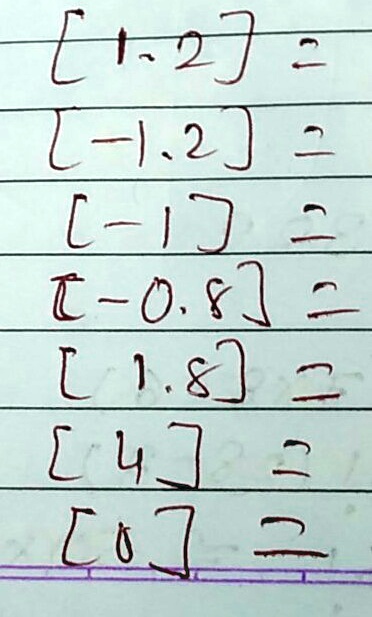 [1.2] =
[-1.2] =
[-1] =
[-0.8] =
[1.8] =
[4] =
[0] =